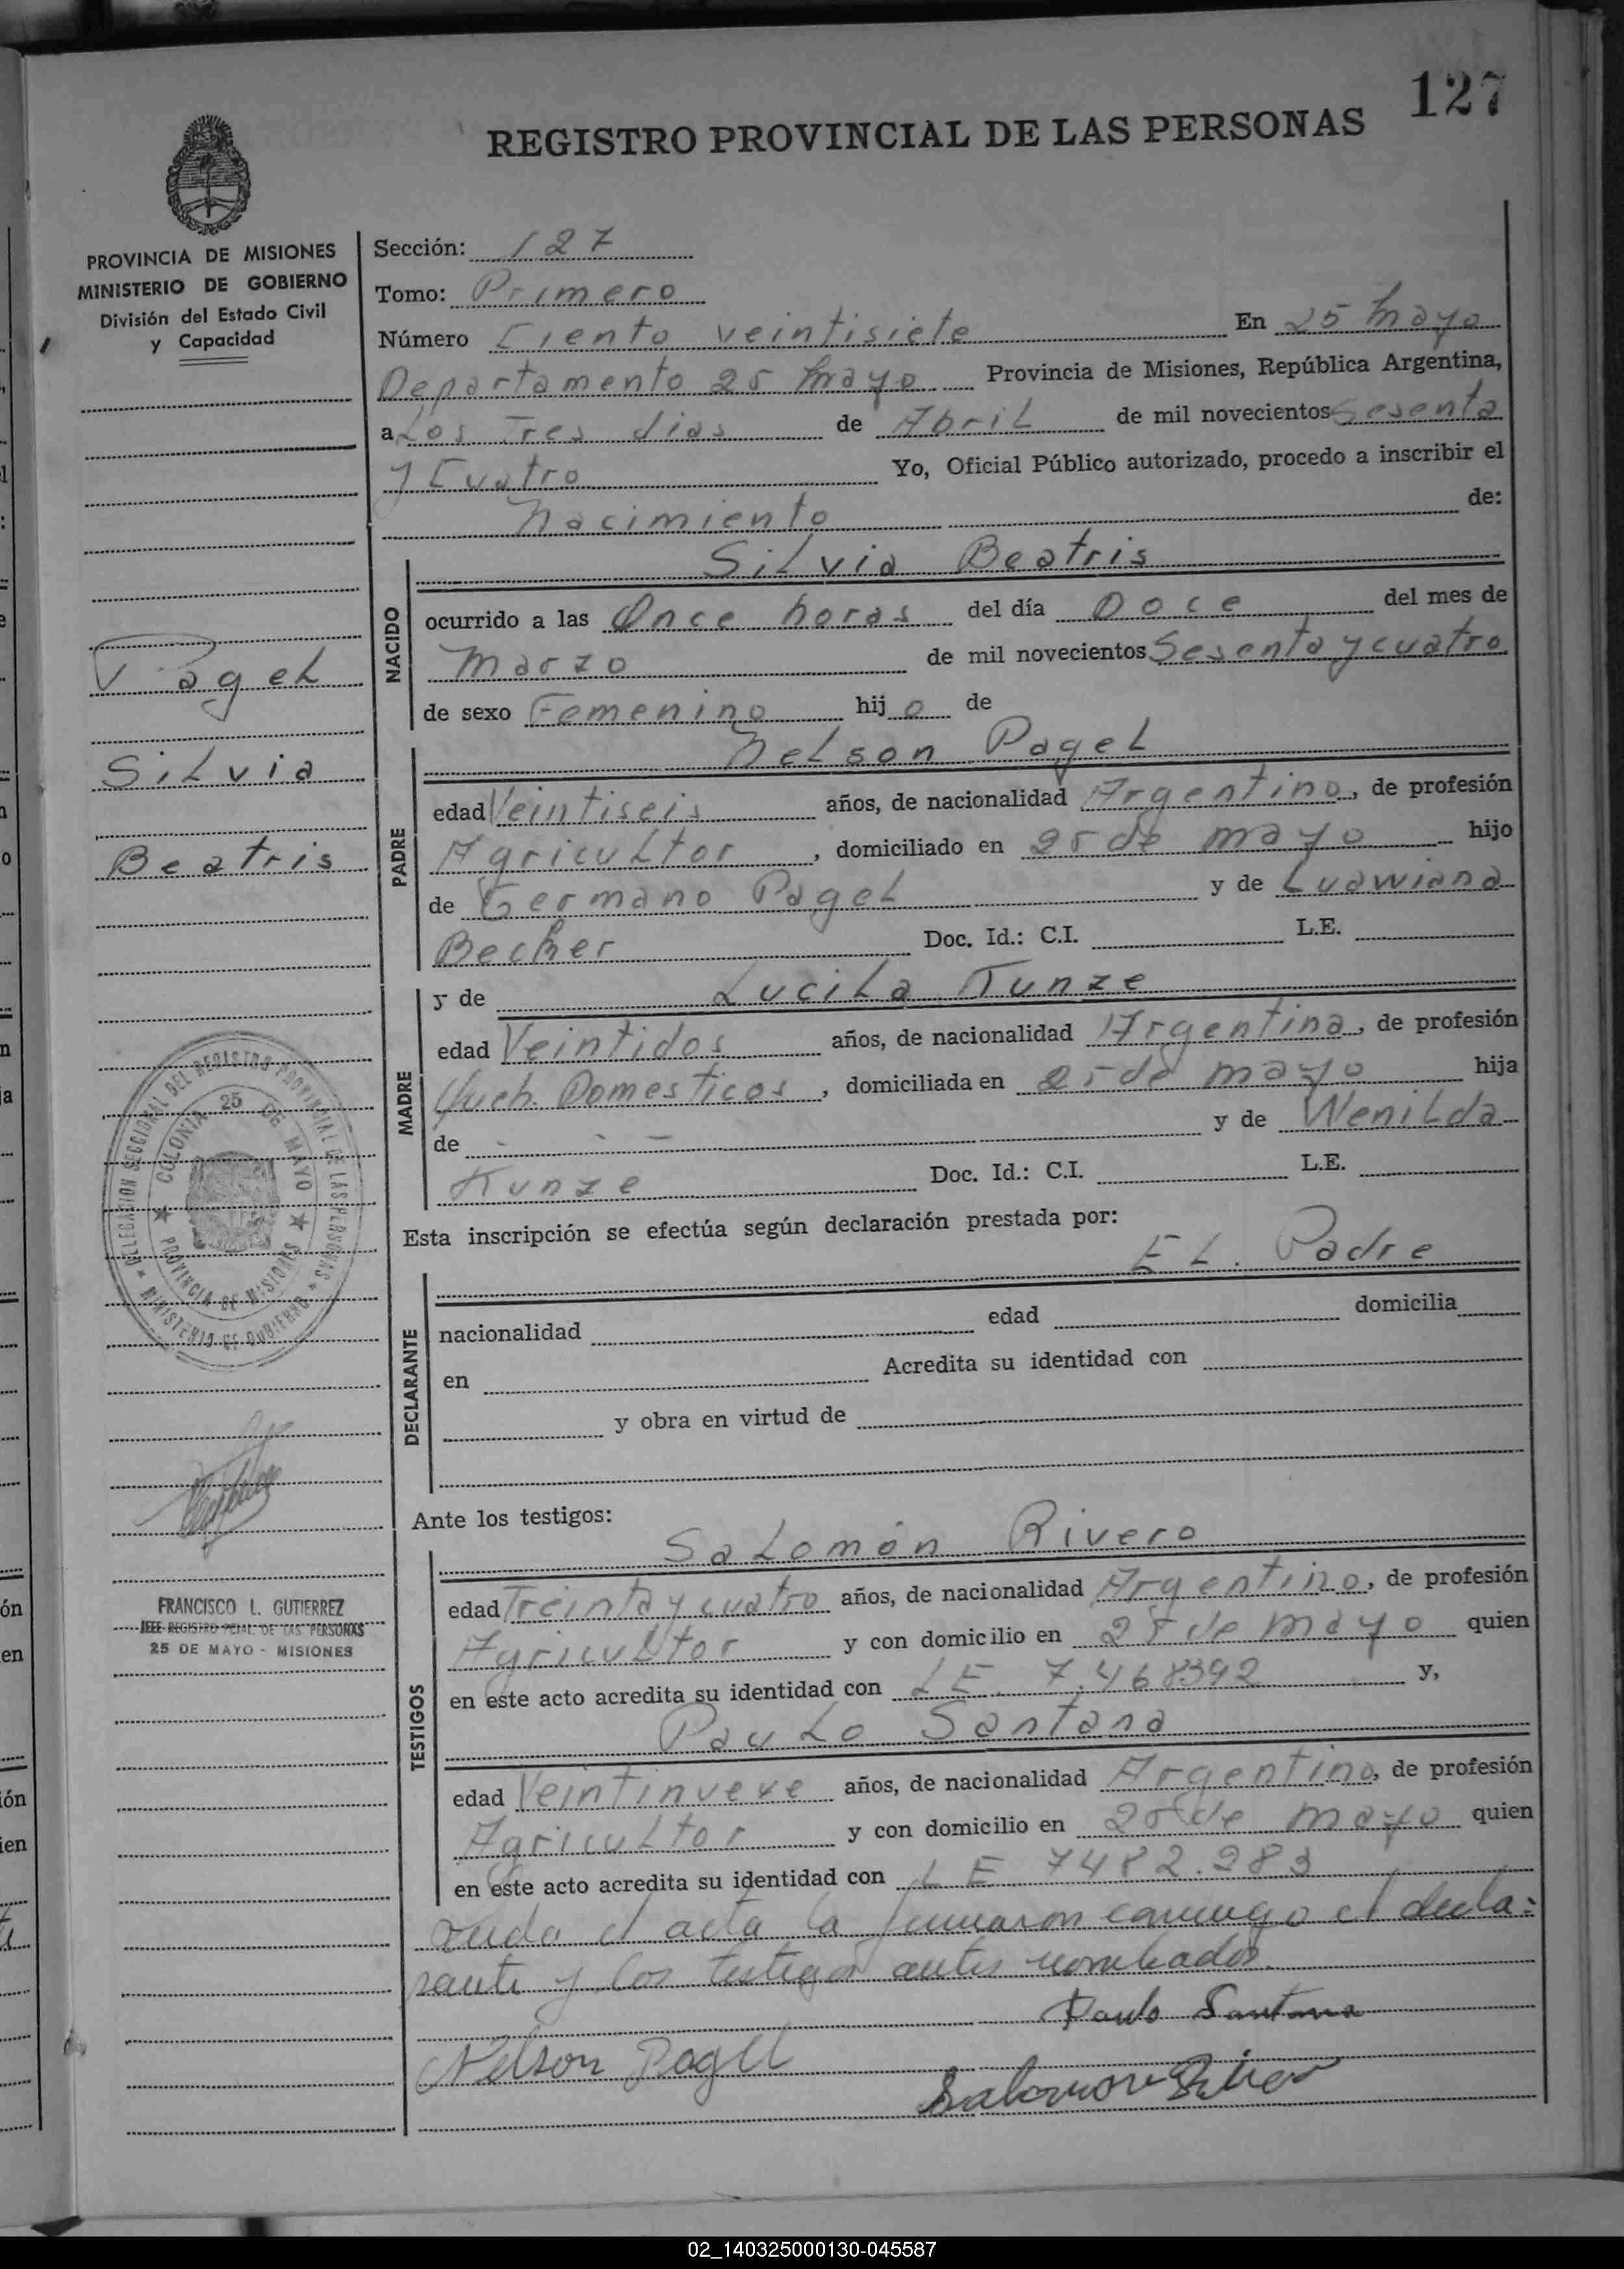 127
REGISTRO PROVINCIAL DE LAS PERSONAS
PROVINCIA DE MISIONES
MINISTERIO DE GOBIERNO
División del Estado Civil
y Capacidad
Sección: 127
Tomo: Primero
Número Ciento veintisiete En 25 Mayo
Departamento 25 Mayo Provincia de Misiones, República Argentina,
a Los Tres dias de Abril de mil novecientos Sesenta
y Cuatro Yo, Oficial Público autorizado, procedo a inscribir el
Nacimiento de:
NACIDO
Silvia Beatris
ocurrido a las Once horas del día Doce del mes de
Marzo de mil novecientos Sesenta y cuatro
de sexo Femenino hijo de
Pagel
Silvia
Beatris
PADRE
Nelson Pagel
edad Veintiseis años, de nacionalidad Argentino, de profesión
Agricultor, domiciliado en 25 de mayo hijo
de Germano Pagel y de Ludwiana
Becker Doc. Id.: C.I. L.E.
MADRE
y de Lucila Kunze
edad Veintidos años, de nacionalidad Argentina, de profesión
Queh. Domesticos, domiciliada en 25 de mayo hija
de y de Wenilda
Kunze Doc. Id.: C.I. L.E.
DELEGACION SECCIONAL DEL REGISTRO PROVINCIAL DE LAS PERSONAS
MINISTERIO DE GOBIERNO
COLONIA 25 DE MAYO
PROVINCIA DE MISIONES
Esta inscripción se efectúa según declaración prestada por:
DECLARANTE
El Padre
nacionalidad edad domicilia
en Acredita su identidad con
y obra en virtud de
Ante los testigos:
TESTIGOS
Salomón Rivero
edad Treinta y cuatro años, de nacionalidad Argentino, de profesión
Agricultor y con domicilio en 25 de mayo quien
en este acto acredita su identidad con LE. 7.468392 y,
Paulo Santana
edad Veintinueve años, de nacionalidad Argentino, de profesión
Agricultor y con domicilio en 25 de mayo quien
en este acto acredita su identidad con LE 7482.283
FRANCISCO L. GUTIERREZ
JEFE REGISTRO PCIAL. DE LAS PERSONAS
25 DE MAYO - MISIONES
el acta la firmaron conmigo el decla-
rante y los testigos antes nombrados.
Paulo Santana
Nelson Pagel
Salomon Rivero
02_140325000130-045587